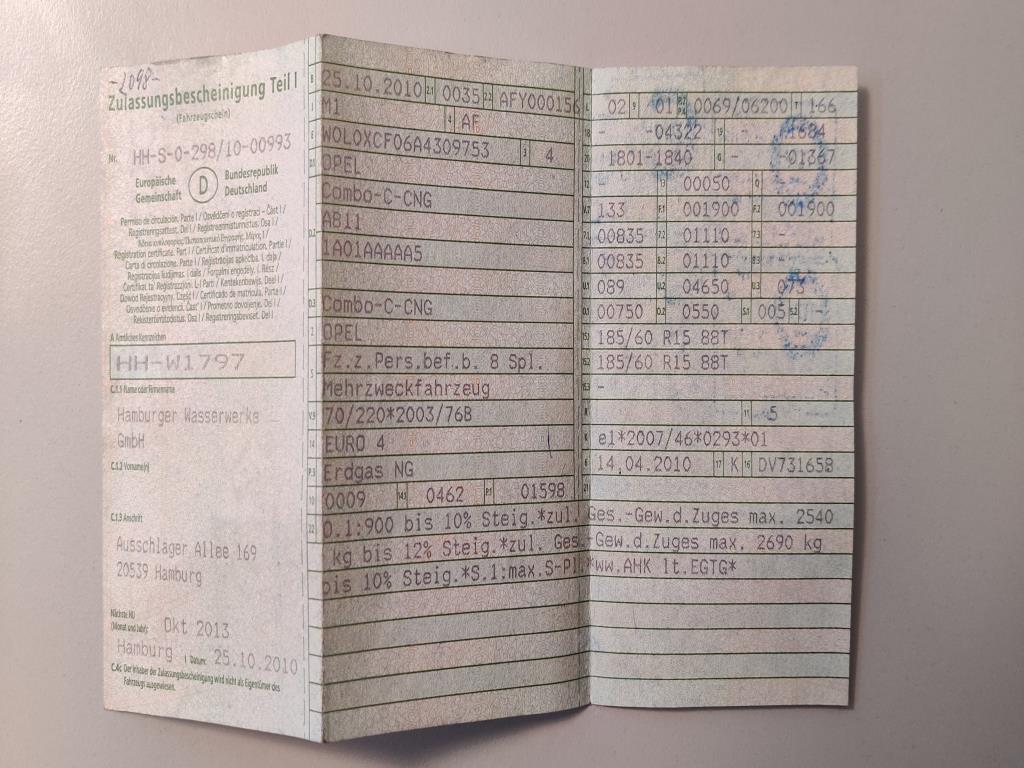 -2098-
Zulassungsbescheinigung Teil I
(Fahrzeugschein)
Nr. HH-S-0-298/10-00993
Europäische Gemeinschaft D Bundesrepublik Deutschland
Permiso de circulación. Parte I / Osvědčení o registraci – Část I /
Registreringsattest. Del I / Registreerimistunnistus. Osa I /
Registration certificate. Part I / Certificat d'immatriculation. Partie I /
Carta di circolazione. Parte I / Reģistrācijas apliecība. I daļa /
Registracijos liudijimas. I dalis / Forgalmi engedély. I. Rész /
Ċertifikat ta' Reġistrazzjoni. L-I Parti / Kentekenbewijs. Deel I /
Dowód Rejestracyjny. Część I / Certificado de matrícula. Parte I /
Osvedčenie o evidencii. Časť I / Prometno dovoljenje. Del I /
Rekisteröintitodistus. Osa I / Registreringsbeviset. Del I
A Amtliches Kennzeichen
HH-W1797
C.1.1 Name oder Firmenname
Hamburger Wasserwerke
GmbH
C.1.2 Vorname(n)
C.1.3 Anschrift
Ausschläger Allee 169
20539 Hamburg
Nächste HU
(Monat und Jahr): Okt 2013
Hamburg I Datum: 25.10.2010
C.4c Der Inhaber der Zulassungsbescheinigung wird nicht als Eigentümer des
Fahrzeugs ausgewiesen.
B 25.10.2010 2.1 0035 2.2 AFY000156
J M1 4 AF
E W0L0XCF06A4309753 3 4
D.1 OPEL
Combo-C-CNG
D.2 AB11
1A01AAAAA5
D.3 Combo-C-CNG
2 OPEL
5 Fz.z.Pers.bef.b. 8 Spl.
Mehrzweckfahrzeug
V.9 70/220*2003/76B
14 EURO 4
P.3 Erdgas NG
10 0009 14.1 0462 P.1 01598
L 02 9 01 P.2 P.4 0069/06200 T 166
18 - -04322 19 - -1684
20 1801-1840 G - -01367
12 13 00050 Q
V.7 133 F.1 001900 F.2 001900
7.1 00835 7.2 01110 7.3 -
8.1 00835 8.2 01110 8.3 -
U.1 089 U.2 04650 U.3 073
O.1 00750 O.2 0550 S.1 005 S.2 -
15.1 185/60 R15 88T
15.2 185/60 R15 88T
15.3 -
R 11 5
K e1*2007/46*0293*01
6 14.04.2010 17 K 16 DV731658
21
22 O.1:900 bis 10% Steig.*zul. Ges.-Gew.d.Zuges max. 2540
kg bis 12% Steig.*zul. Ges.-Gew.d.Zuges max. 2690 kg
bis 10% Steig.*S.1:max.S-Pl. *ww.AHK lt.EGTG*